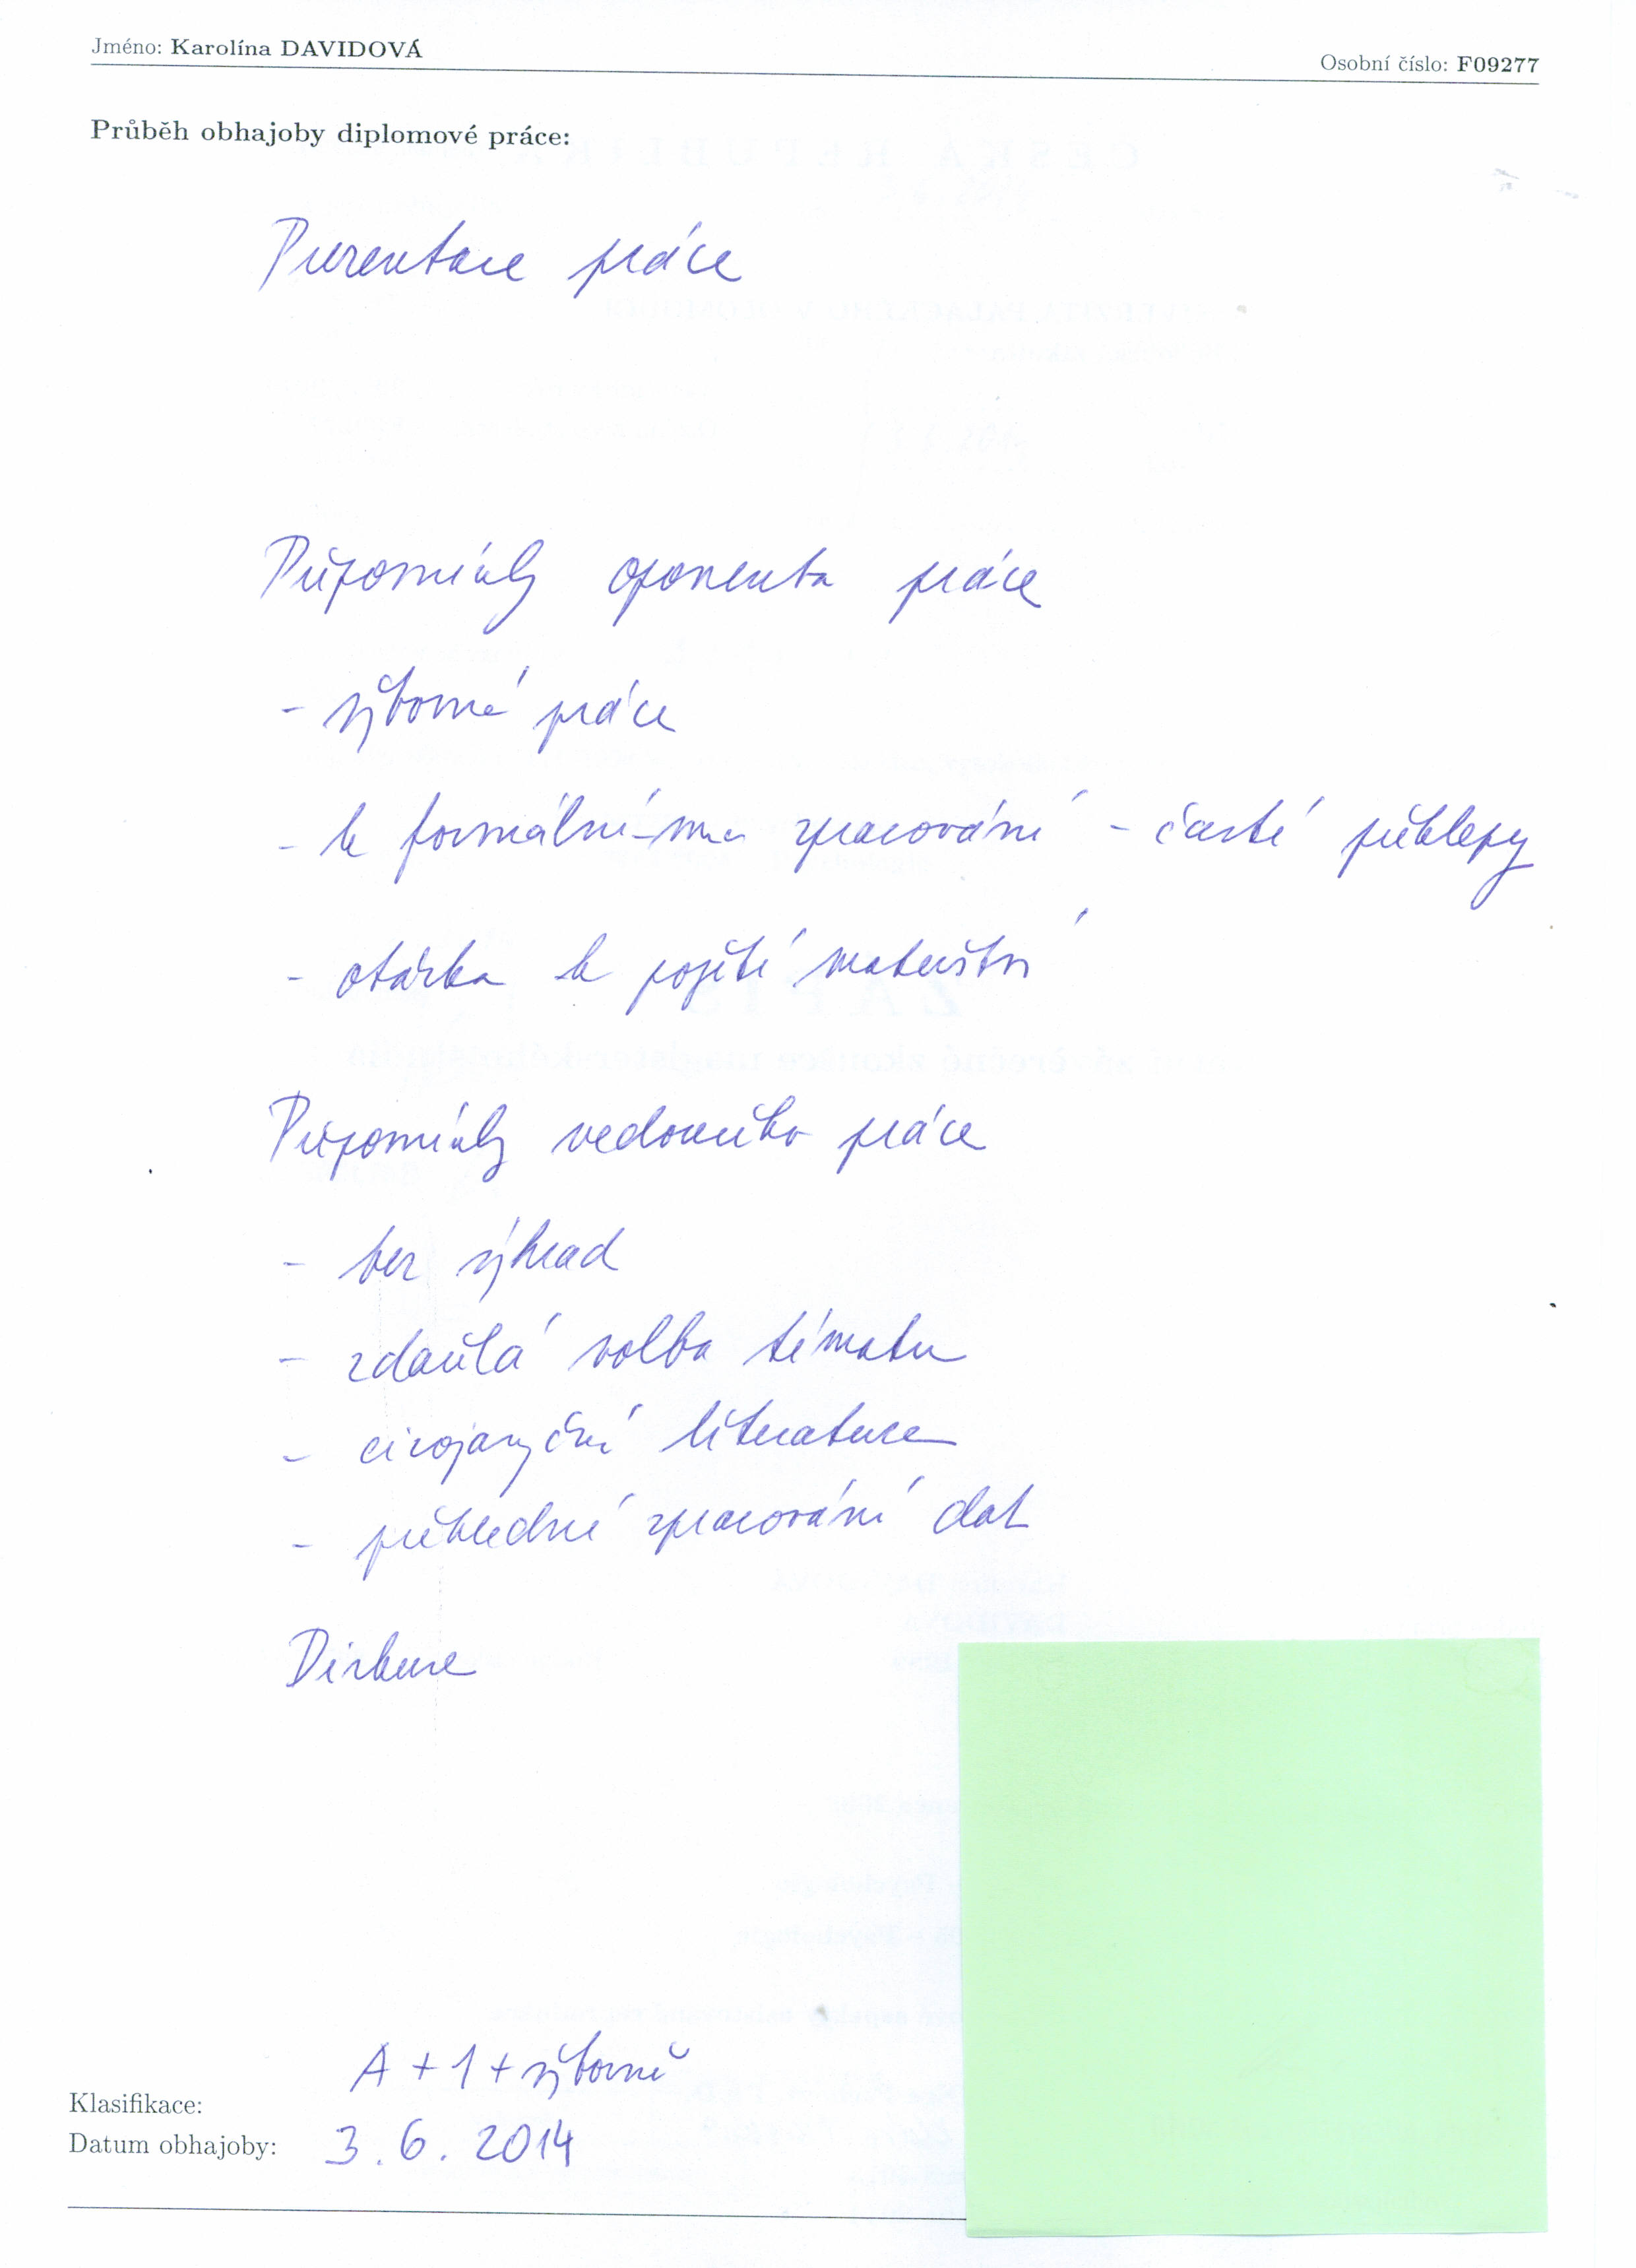 Jméno: Karolína DAVIDOVÁ
Osobní číslo: F09277
Průběh obhajoby diplomové práce:
Prezentace práce
Připomínky oponenta práce
- výborná práce
- k formálnímu zpracování - časté překlepy
- otázka k pojetí mateřství
Připomínky vedoucího práce
- bez výhrad
- zdařilá volba tématu
- cizojazyčná literatura
- přehledné zpracování dat
Diskuse
A + 1 + výborně
Klasifikace:
Datum obhajoby: 3. 6. 2014